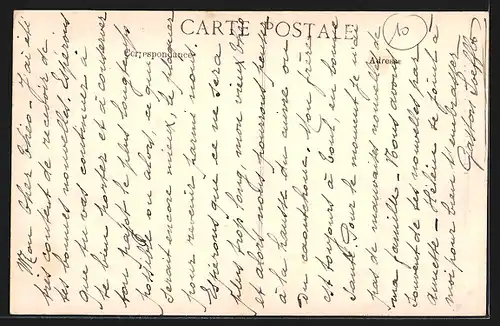 CARTE POSTALE
Correspondance
Adresse
10
Mon cher Théo - J'ai été
très content de recevoir de
tes bonnes nouvelles. Espérons
que tu vas continuer à
te bien porter et à conserver
ton pajot le plus longtemps
possible ou alors, ce qui
serait encore mieux, le plaquer
pour revenir parmi nous.
Espérons que ce ne sera
plus trop long, mon vieux Théo
et alors nous pourrons penser
à la hausse du cuivre ou
du caoutchouc. Mon père
est toujours à bout, en bonne
santé. Pour le moment je n'ai
pas de mauvaises nouvelles de
ma famille - Nous avons
souvent de tes nouvelles par
Annette - Hélène se joint à
moi pour bien t'embrasser
Gaston